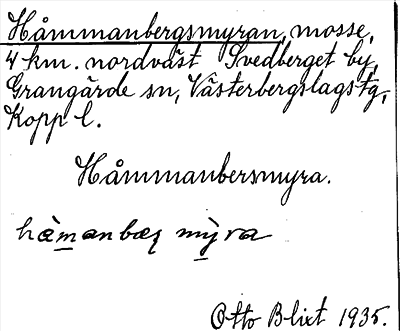 Håmmanbergsmyran, mosse,
4 km. nordväst Svedberget by,
Grangärde sn, Västerbergslags tg,
Kopp l.
Håmmanbersmyra.
hàmanbæʂ mỳra
Otto Blixt 1935.